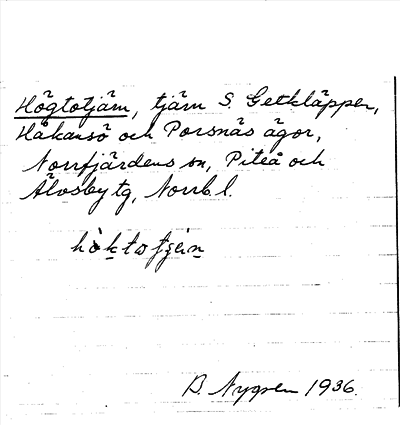 Högtotjäm, tjärn S. Getkläppen,
Håkansö och Porsnäs ägor,
Norrfjärdens sn, Piteå och
Älvsby tg, Norrb. l.
B. Nygren 1936.